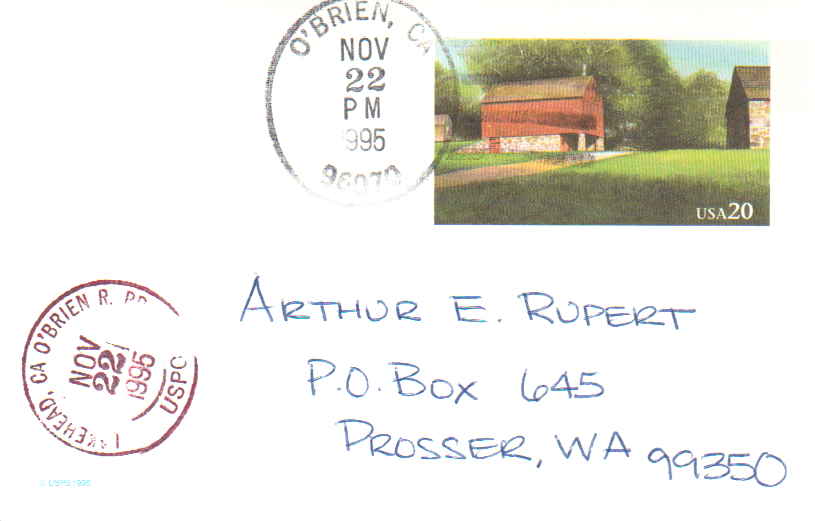 O'BRIEN, CA
NOV
22
PM
1995
96070
USA20
LAKEHEAD, CA O'BRIEN R. BR.
NOV
22
1995
USPO
ARTHUR E. RUPERT
P.O. BOX 645
PROSSER, WA 99350
© USPS 1995